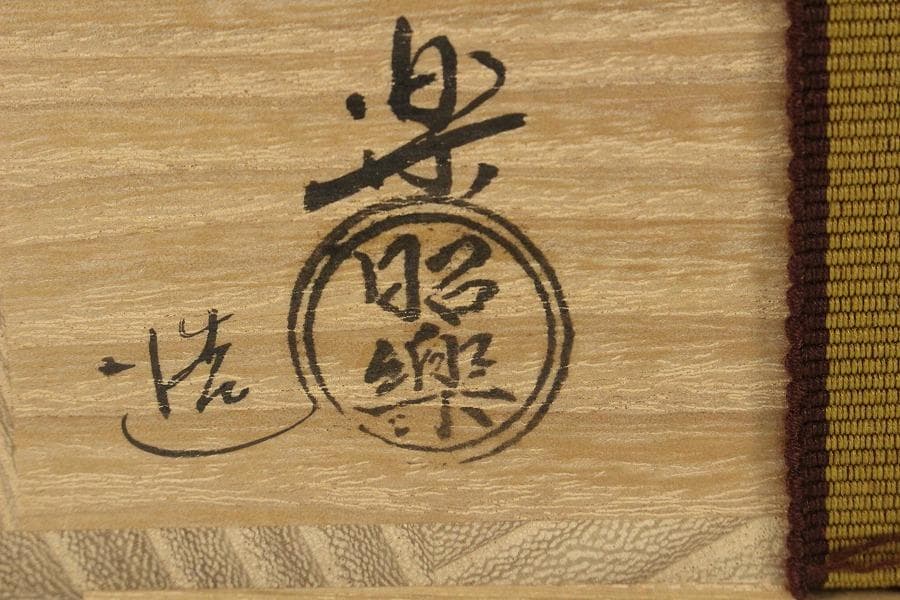 楽
昭
樂
造